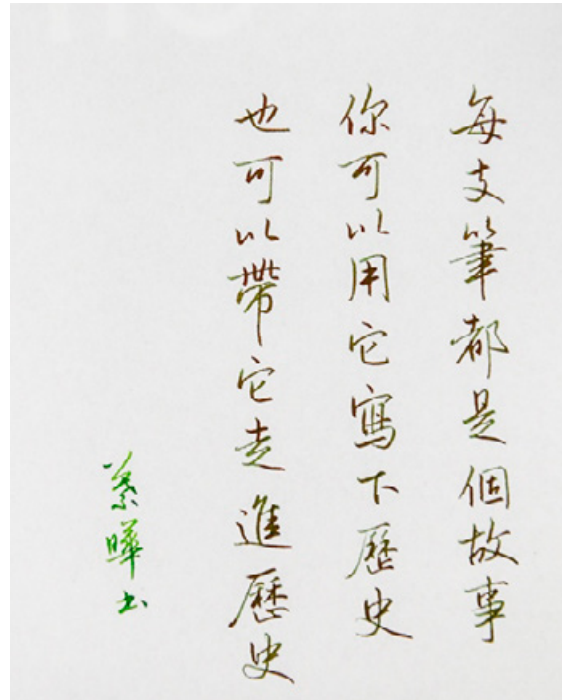 每支筆都是個故事
你可以用它寫下歷史
也可以帶它走進歷史
曄書